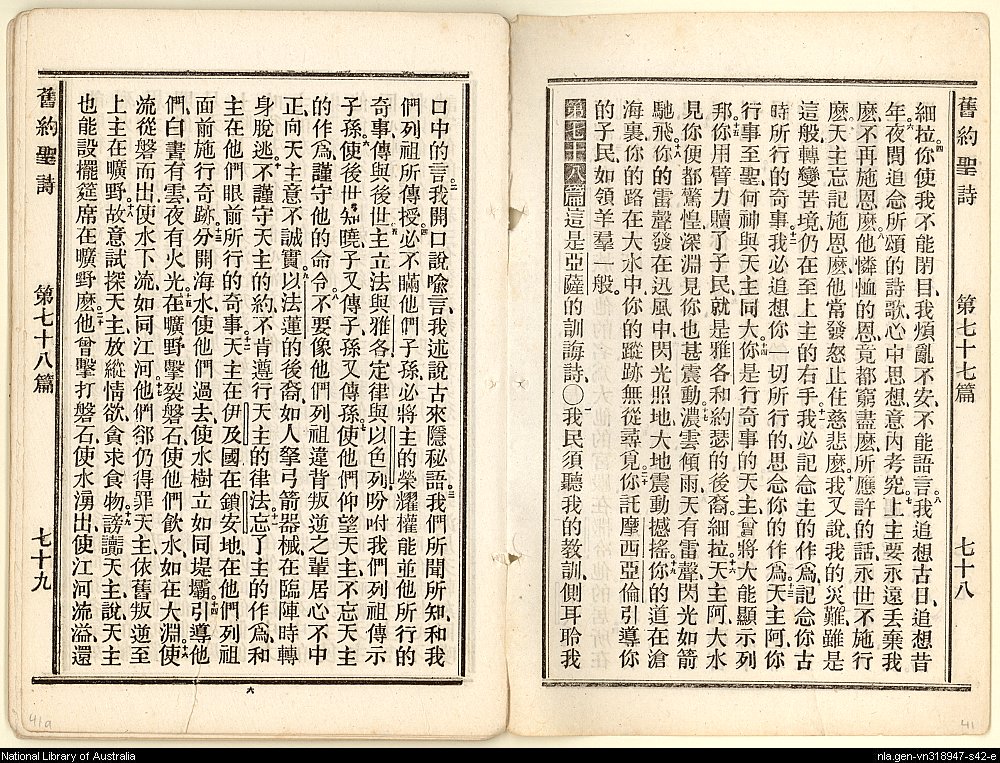 舊約聖詩 第七十七篇 七十八
細拉、你使我不能閉目、我煩亂不安、不能語言、我追想古日、追想昔
年、夜間追念所頌的詩歌、心中思想、意內考究、上主要永遠丟棄我
麽、不再施恩麽、他憐恤的恩、竟都窮盡麽、所應許的話、永世不施行
麽、天主忘記施恩麽、他當發怒止住慈悲麽、我又說、我的災難、雖是
這般、轉變苦境、仍在至上主的右手、我必記念主的作爲、記念你古
時所行的奇事、我必追想你一切所行的、思念你的作爲、天主阿、你
行事至聖、何神與天主同大、你是行奇事的天主、曾將大能顯示列
邦、你用臂力贖了子民、就是雅各和約瑟的後裔、細拉、天主阿、大水
見你便都驚惶、深淵見你也甚震動、濃雲傾雨、天有雷聲、閃光如箭
馳飛、你的雷聲發在迅風中、閃光照地、大地震動撼搖、你的道在滄
海裏、你的路在大水中、你的蹤跡無從尋覓、你託摩西亞倫引導你
的子民、如領羊羣一般、
第七十八篇 這是亞薩的訓誨詩、〇我民須聽我的教訓、側耳聆我
口中的言、我開口說喩言、我述說古來隱秘語、我們所聞所知、和我
們列祖所傳授、必不瞞他們子孫、必將主的榮耀權能、並他所行的
奇事、傳與後世、主立法與雅各、定律與以色列、吩咐我們列祖傳示
子孫、使後世知曉、子又傳子、孫又傳孫、使他們仰望天主、不忘天主
的作爲、謹守他的命令、不要像他們列祖違背叛逆之輩、居心不中
正、向天主意不誠實、以法蓮的後裔、如人拏弓箭器械、在臨陣時轉
身脫逃、不謹守天主的約、不肯遵行天主的律法、忘了主的作爲、和
主在他們眼前所行的奇事、天主在伊及國、在鎖安地、在他們列祖
面前施行奇跡、分開海水、使他們過去、使水樹立如同堤壩、引導他
們、白晝有雲、夜有火光、在曠野擊裂磐石、使他們飲水、如在大淵、使
流從磐而出、使水下流、如同江河、他們郤仍得罪天主、依舊叛逆至
上主、在曠野、故意試探天主、放縱情欲、貪求食物、謗讟天主、說、天主
也能設擺筵席在曠野麽、他曾擊打磐石、使水湧出、使江河流溢、還
舊約聖詩 第七十八篇 七十九
六
41a
41
National Library of Australia
nla.gen-vn318947-s42-e